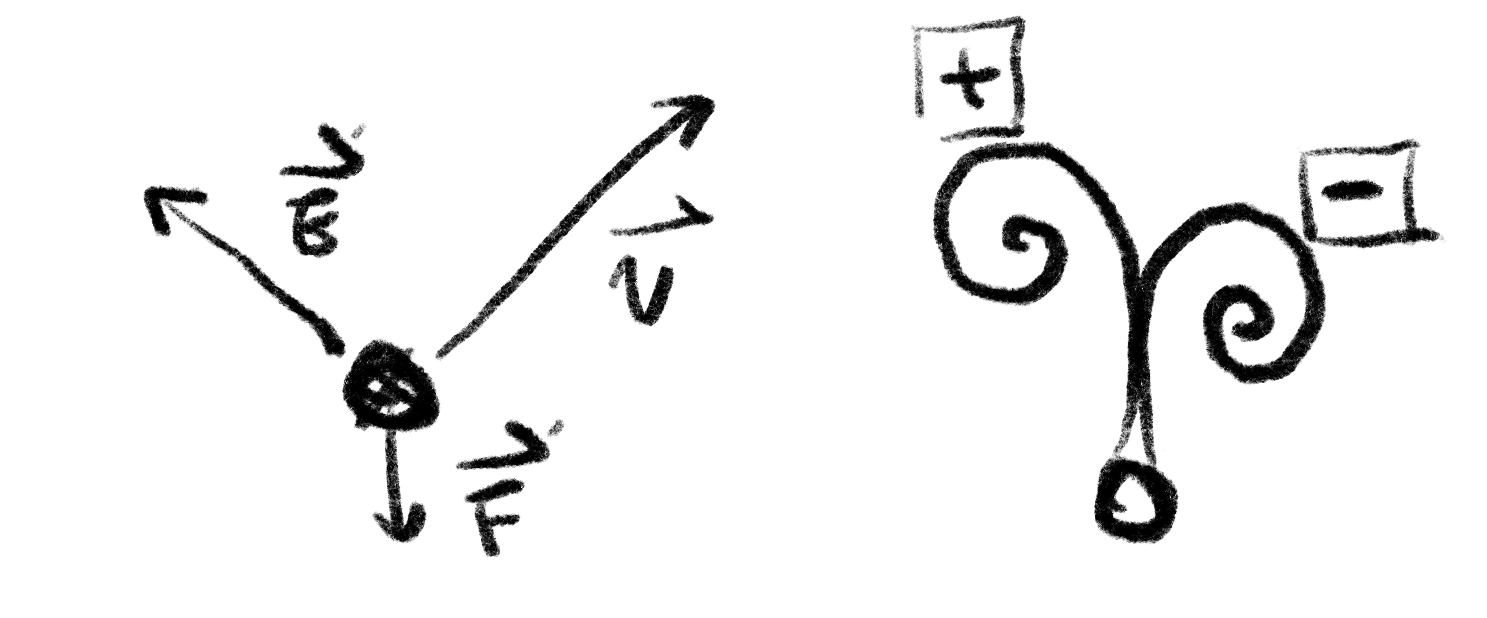 B⃗
V⃗
F⃗
+
-